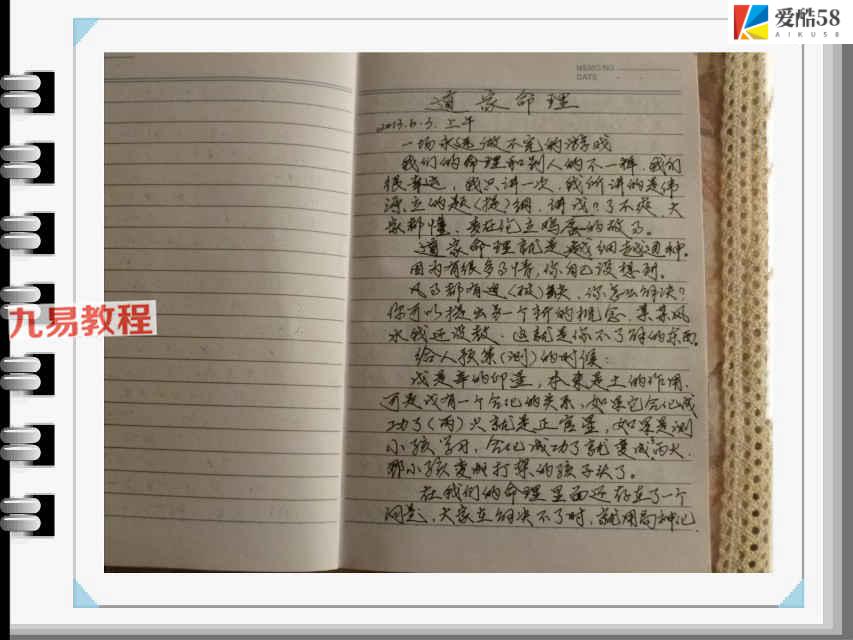 爱酷58
AIKU58
MEMO NO.
DATE
道家命理
2013.6.3.上午
一场永远做不完的游戏
我们的命理和别人的不一样,我们
很幸运,我只讲一次,我所讲的是伟
立的题(提)纲,讲戊?了不疑,大
家都懂,贵在伦立鸡蛋的故事。
道家命理就是越细越通神。
因为有很多事情,你自己没想到。
凡事都有进(极)缺,你怎么解决?
你可以提出另一个新的概念,某某风
水我还没教,这就是你不了解的东西。
给人预策(测)的时候:
戊是辛的印星,本来是土的作用,
可是戊有一个合化的关系,如果它合化成
功了(丙)火就是正官星,如果是测
小孩学习,合化成功了就变成丙火,
那小孩变成打架的孩子头了。
在我们的命理里面还存在了一个
问题,大家在解决不了时,就用局神论
九易教程